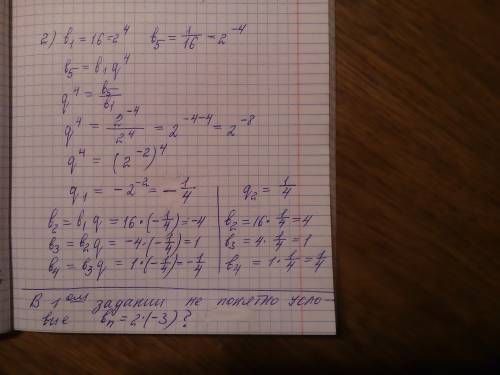 2) b₁ = 16 = 2⁴ b₅ = 1/16 = 2⁻⁴
b₅ = b₁ q⁴
q⁴ = b₅/b₁
q⁴ = 2⁻⁴/2⁴ = 2⁻⁴⁻⁴ = 2⁻⁸
q⁴ = (2⁻²)⁴
q₁ = -2⁻² = -1/4 q₂ = 1/4
b₂ = b₁ q = 16·(-1/4) = -4 b₂ = 16·1/4 = 4
b₃ = b₂ q = -4·(-1/4) = 1 b₃ = 4·1/4 = 1
b₄ = b₃ q = 1·(-1/4) = -1/4 b₄ = 1·1/4 = 1/4
В 1ом задании не понятно усло-
вие bₙ = 2·(-3)?